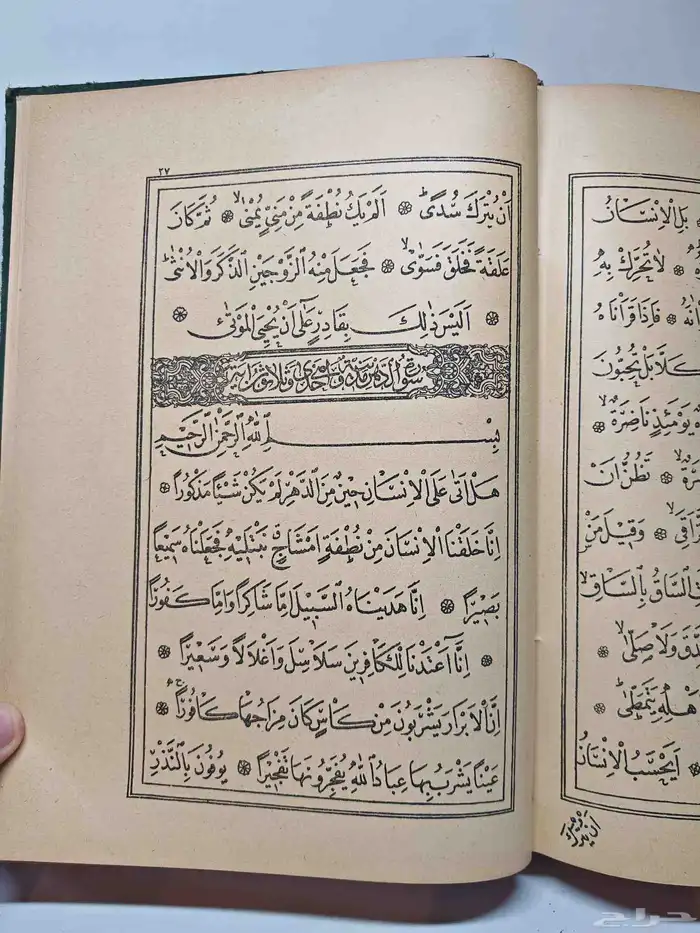 بَلِ الْاِنْسَانُ
لَا تُحَرِّكْ بِهِ
فَاِذَا قَرَأْنَاهُ
كَلَّا بَلْ تُحِبُّونَ
يَوْمَئِذٍ نَاضِرَةٌ
تَظُنُّ اَنْ
وَقِيلَ مَنْ
السَّاقُ بِالسَّاقِ
وَلَا صَلّٰى
يَتَمَطّٰى
اَيَحْسَبُ الْاِنْسَانُ
٢٧
اَنْ يُتْرَكَ سُدًى ۞ اَلَمْ يَكُ نُطْفَةً مِنْ مَنِيٍّ يُمْنٰى ۞ ثُمَّ كَانَ
عَلَقَةً فَخَلَقَ فَسَوّٰى ۞ فَجَعَلَ مِنْهُ الزَّوْجَيْنِ الذَّكَرَ وَالْاُنْثٰى
۞ اَلَيْسَ ذٰلِكَ بِقَادِرٍ عَلٰٓى اَنْ يُحْيِيَ الْمَوْتٰى ۞
سورة الدهر مدنية وهي احدى وثلاثون آية
بِسْمِ اللّٰهِ الرَّحْمٰنِ الرَّحِيمِ
هَلْ اَتٰى عَلَى الْاِنْسَانِ حِينٌ مِنَ الدَّهْرِ لَمْ يَكُنْ شَيْئًا مَذْكُورًا ۞
اِنَّا خَلَقْنَا الْاِنْسَانَ مِنْ نُطْفَةٍ اَمْشَاجٍ نَبْتَلِيهِ فَجَعَلْنَاهُ سَمِيعًا
بَصِيرًا ۞ اِنَّا هَدَيْنَاهُ السَّبِيلَ اِمَّا شَاكِرًا وَاِمَّا كَفُورًا
۞ اِنَّٓا اَعْتَدْنَا لِلْكَافِرِينَ سَلَاسِلَ وَاَغْلَالًا وَسَعِيرًا ۞
اِنَّ الْاَبْرَارَ يَشْرَبُونَ مِنْ كَأْسٍ كَانَ مِزَاجُهَا كَافُورًا ۞
عَيْنًا يَشْرَبُ بِهَا عِبَادُ اللّٰهِ يُفَجِّرُونَهَا تَفْجِيرًا ۞ يُوفُونَ بِالنَّذْرِ
حراج